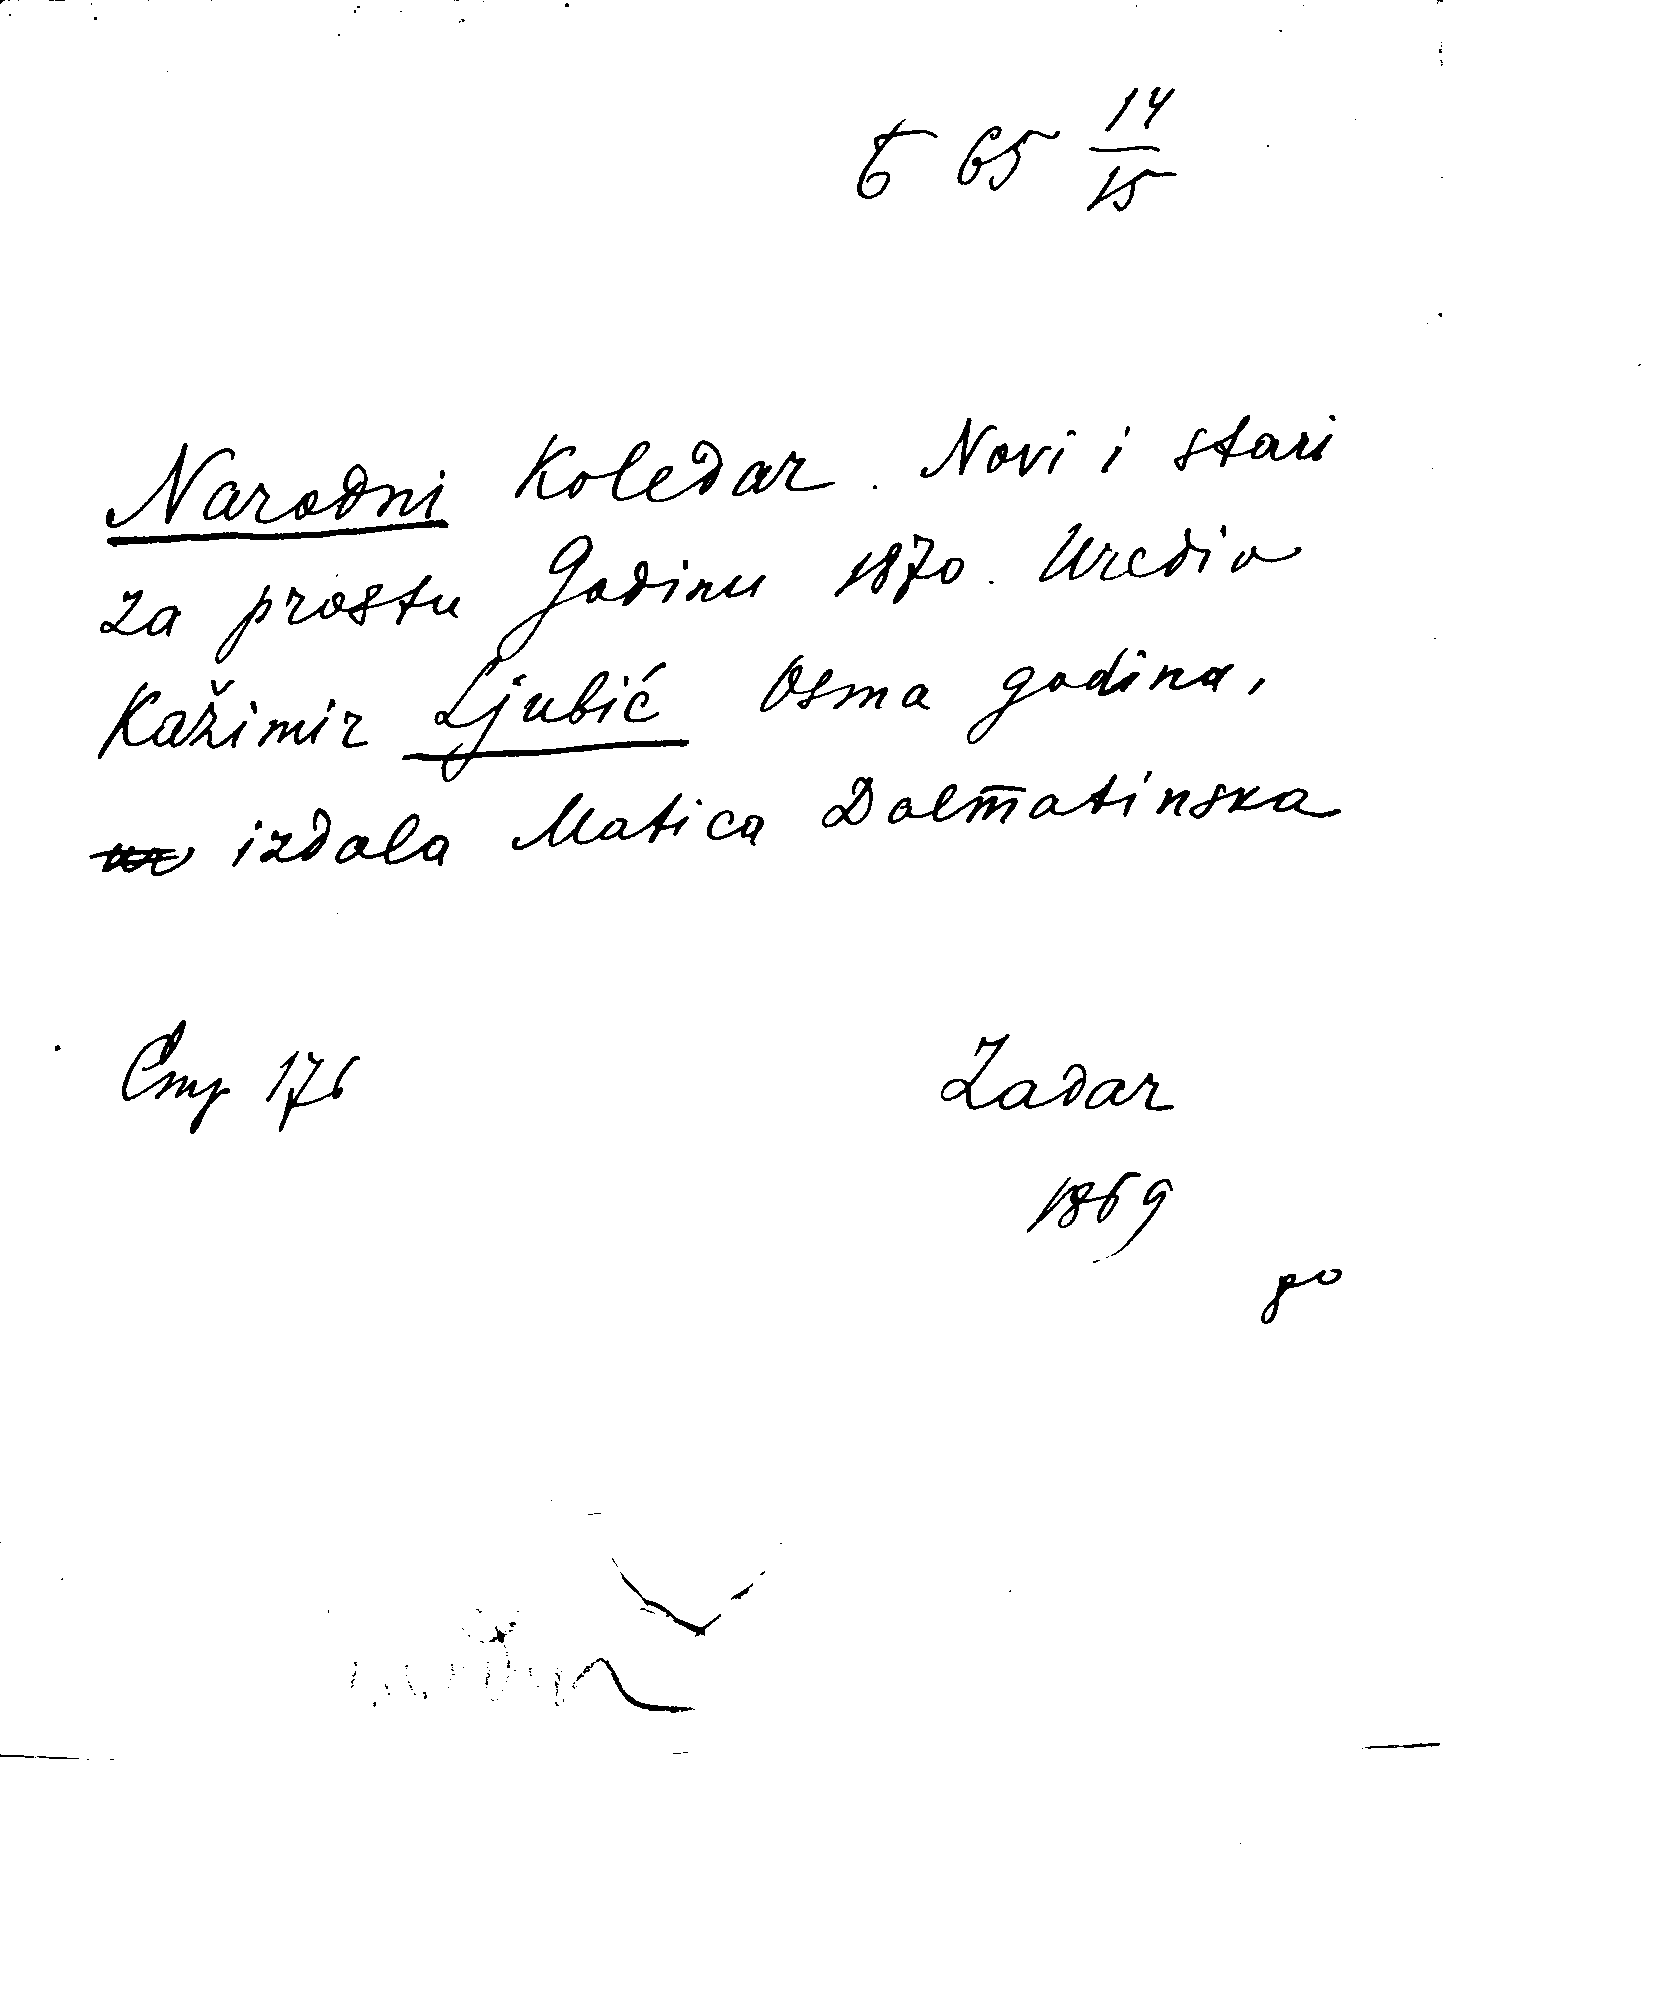 Б 65 14/15
Narodni Koledar. Novi i stari
za prostu Godinu 1870. Uredio
Kažimir Ljubić Osma godina,
izdala Matica Dalmatinska
Стр 176
Zadar
1869